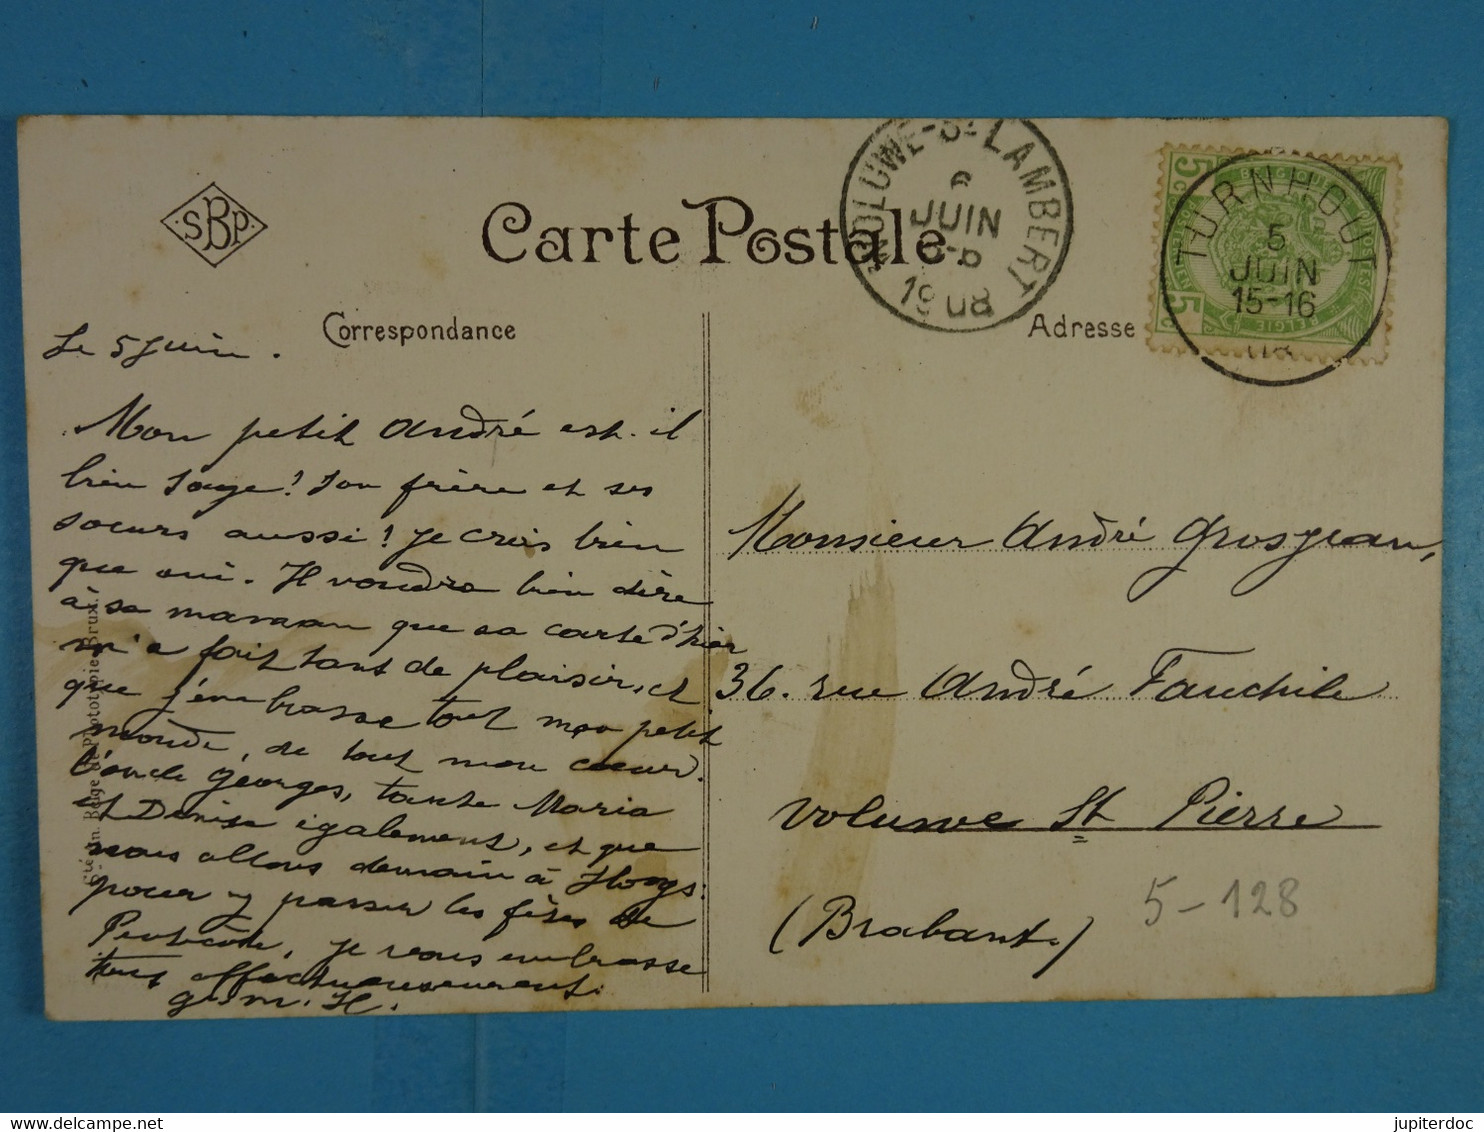 SBP
Carte Postale
WOLUWE-St LAMBERT
JUIN
1908
TURNHOUT
5
JUIN
15-16
08
BELGIQUE
BELGIE
5c
5c
Correspondance
Adresse
Le 5 Juin.
Mon petit André est-il
bien sage! Son frère et ses
soeurs aussi! Je crois bien
que oui. Il voudra bien dire
à sa maman que sa carte d'hier
m'a fait tant de plaisir, et
que j'embrasse tout mon petit
monde, de tout mon coeur.
L'oncle Georges, tante Maria
et Denise également, et que
nous allons demain à
pour y passer les fêtes de
Pentecôte, je vous embrasse
tous affectueusement.
g. m. H.
Monsieur André Grosjean,
36. rue André Fauchile
Voluwe St Pierre
(Brabant.)
5-128
Phototypie Brux.
jupiterdoc